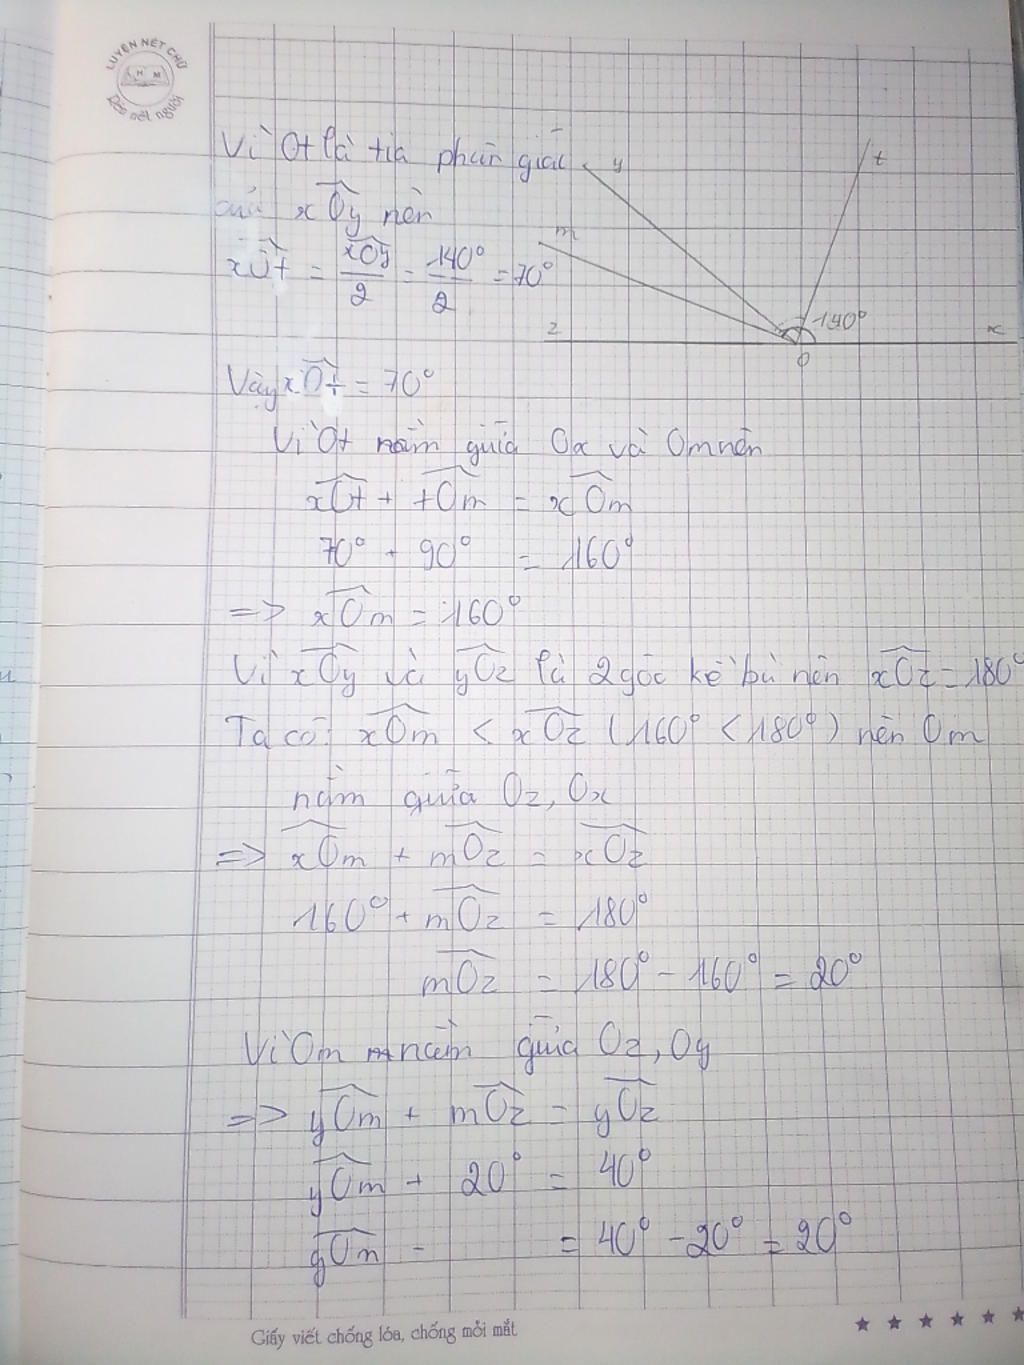 LUYỆN NÉT CHỮ
H M
Rèn nết người
Vì Ot là tia phân giác
của xOy nên
xOt = xOy/2 = 140°/2 = 70°
y
t
m
z
140°
x
O
Vậy xOt = 70°
Vì Ot nằm giữa Ox và Om nên
xOt + tOm = xOm
70° + 90° = 160°
=> xOm = 160°
Vì xOy và yOz là 2 góc kề bù nên xOz = 180°
Ta có: xOm < xOz (160° < 180°) nên Om
nằm giữa Oz, Ox
=> xOm + mOz = xOz
160° + mOz = 180°
mOz = 180° - 160° = 20°
Vì Om nằm giữa Oz, Oy
=> yOm + mOz = yOz
yOm + 20° = 40°
yOm = 40° - 20° = 20°
Giấy viết chống lóa, chống mỏi mắt